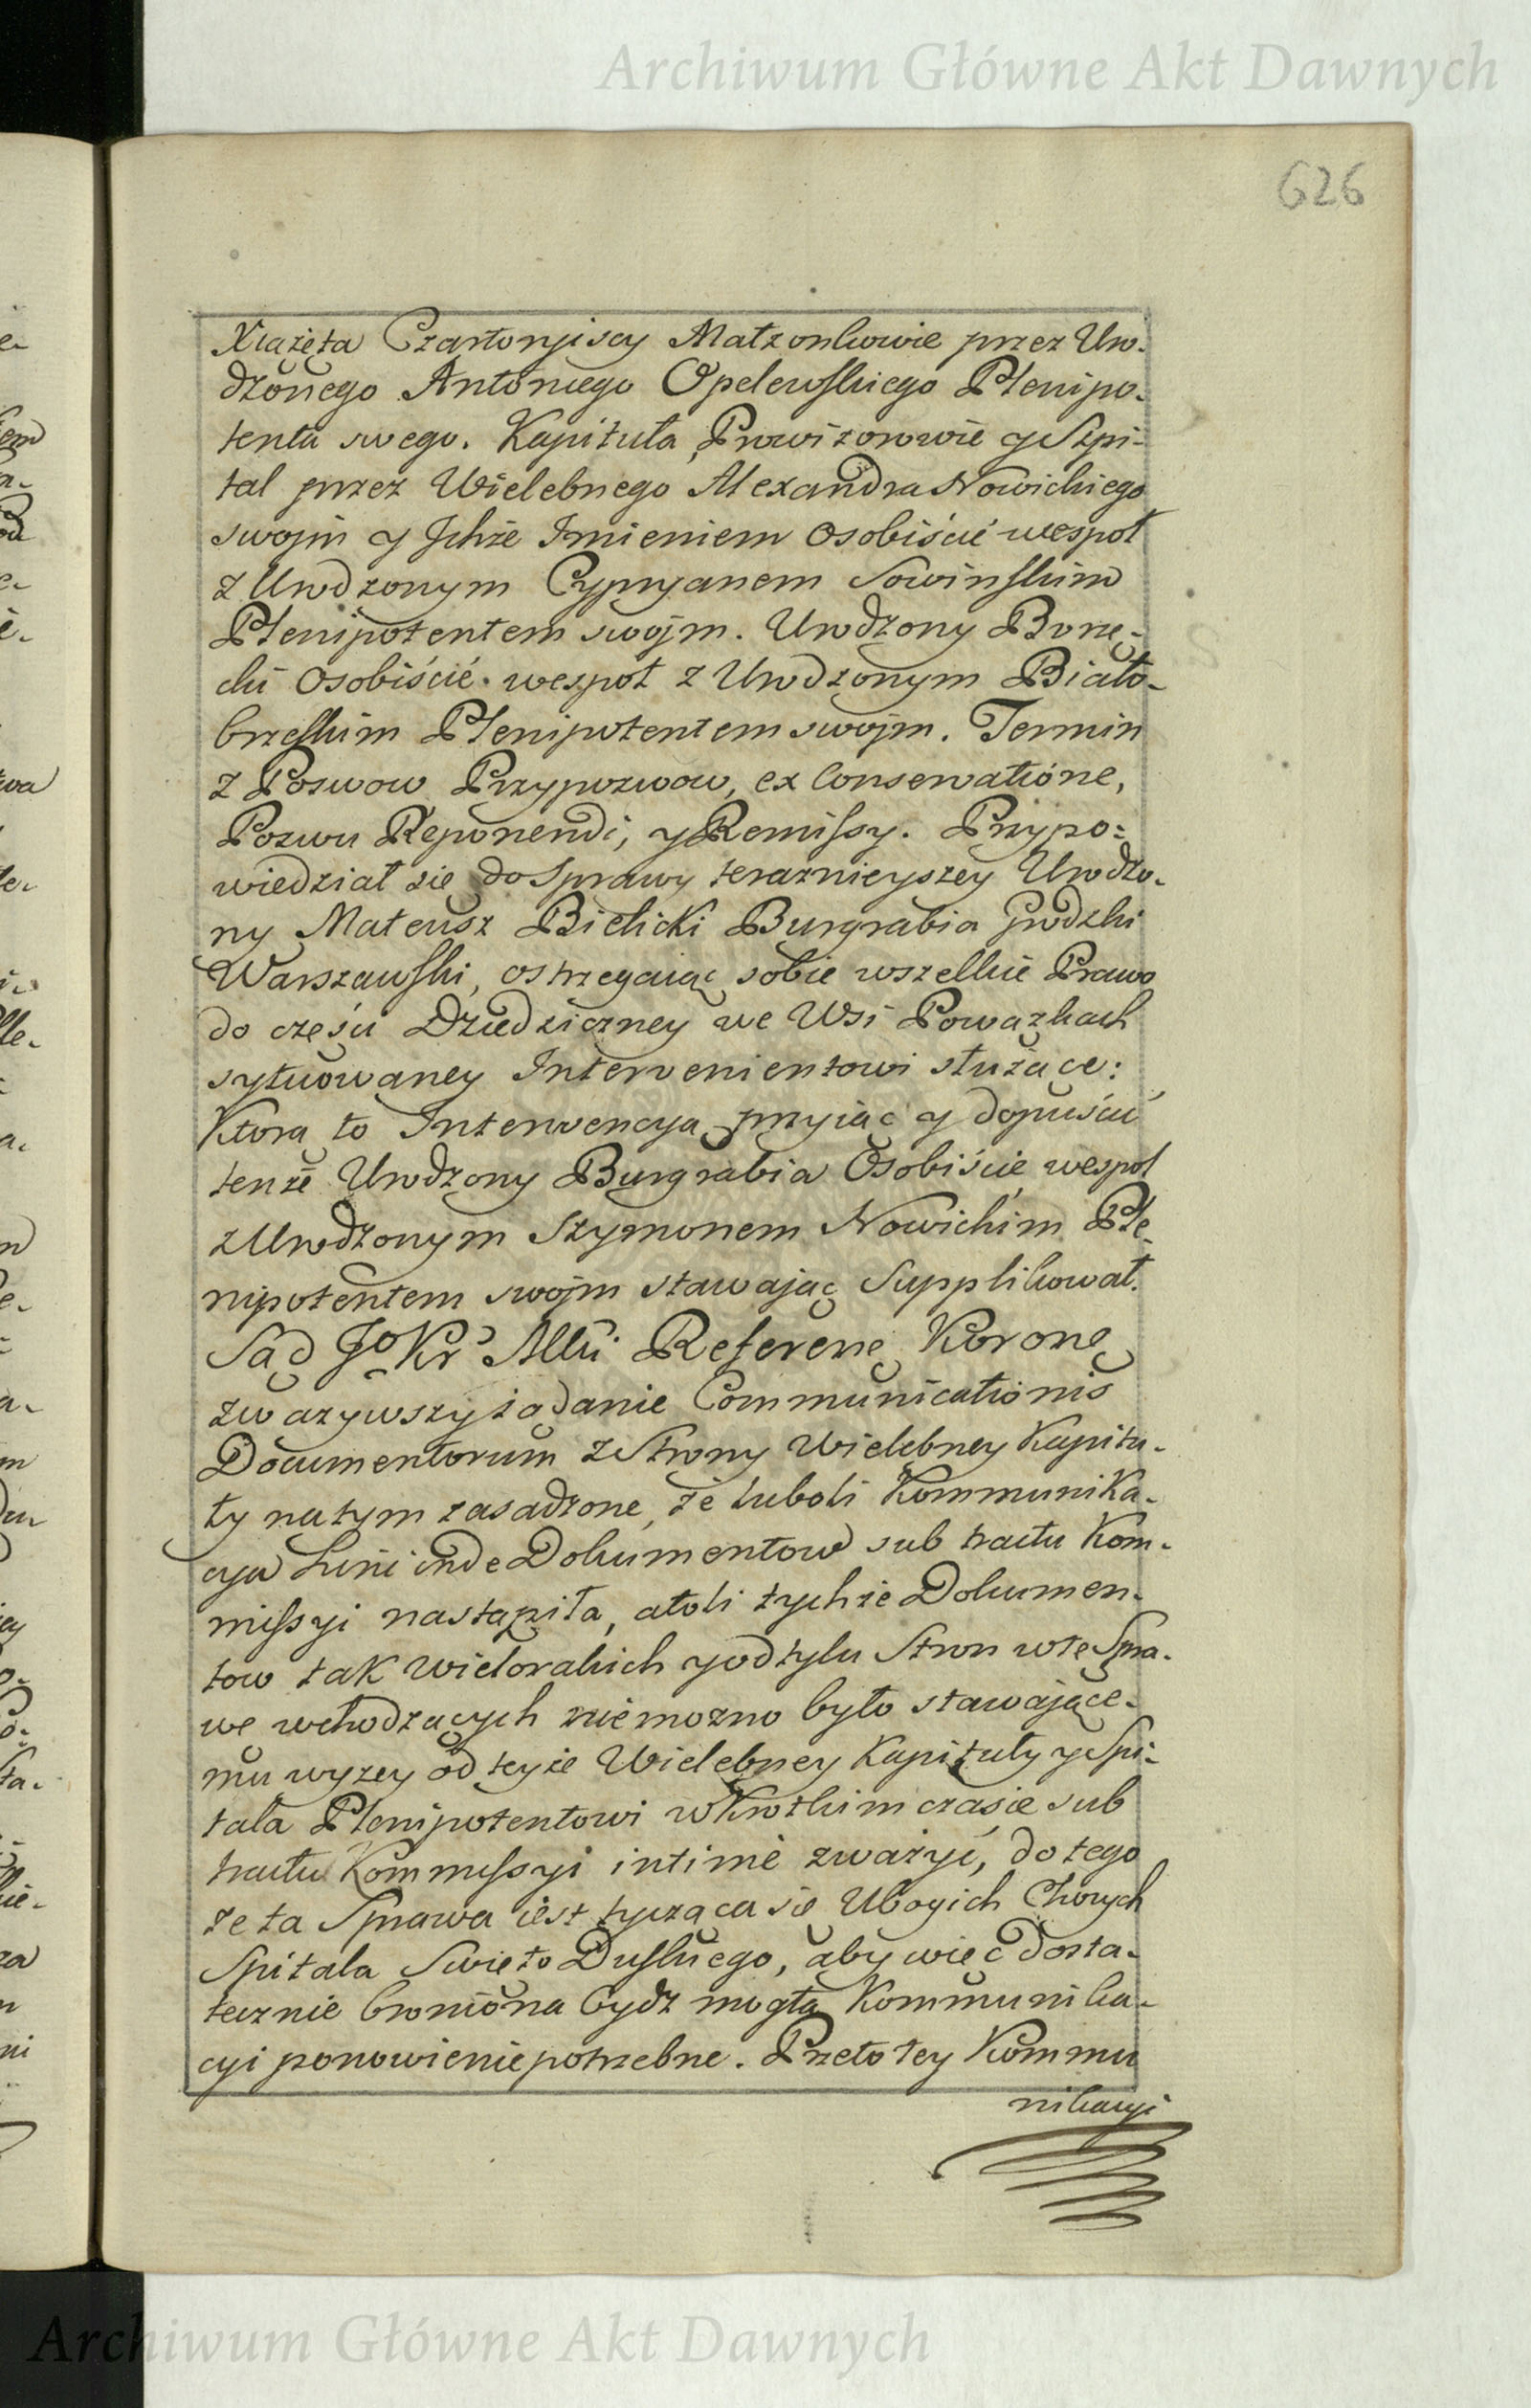 Archiwum Główne Akt Dawnych
626
Xiążęta Czartoryiscy Małzonkowie przez Uro-
dzonego Antoniego Opelewskiego Plenipo-
tenta swego. Kapituła, Prowizorowie y Szpi-
tal przez Wielebnego Alexandra Nowickiego
swoim y Jchże Jmieniem Osobiście wespoł
z Urodzonym Cypryanem Sowinskim
Plenipotentem swoim. Urodzony Borzę-
cki Osobiście wespoł z Urodzonym Biało-
brzeskim Plenipotentem swojm. Termin
z Pozwow Przypozwow, ex Conservatione,
Pozwu Reponendi, y Remissy. Przypo-
wiedział się do Sprawy terazniejszey Urodzo-
ny Mateusz Bielicki Burgrabia Grodzki
Warszawski, ostrzegaiąc sobie wszelkie Prawo
do częsci Dziedziczney we Wsi Powązkach
sytuowaney Intervenientowi słuzące:
Ktorą to Interwencyą przyiąć y dopuścić
tenże Urodzony Burgrabia Osobiście wespoł
z Urodzonym Szymonem Nowickim Ple-
nipotentem swojm stawając Supplikował.
Sąd Jo Kr Mci Referenę Koronę
zwazywszy ządanie Communicationis
Documentorum ze Strony Wielebney Kapitu-
ły na tym zasadzone, że luboli Kommunika-
cya hinc inde Dokumentow sub tractu Kom-
missyi nastąpiła, atoli tychże Dokumen-
tow tak wielorakich y od tylu Stron w tę Spra-
wę wchodzących niemozno było stawające-
mu wyzey od teyże Wielebney Kapituły y Spi-
tala Plenipotentowi w krotkim czasie sub
tractu Kommissyi intime zwazyć, do tego
ze ta Sprawa iest tycząca się Ubogich Chorych
Spitala Swięto Duskiego, aby więc dosta-
tecznie broniona bydz mogła Kommunika-
cyi ponowienie potrzebne. Przeto tey Kommu
nikacyi
Archiwum Główne Akt Dawnych